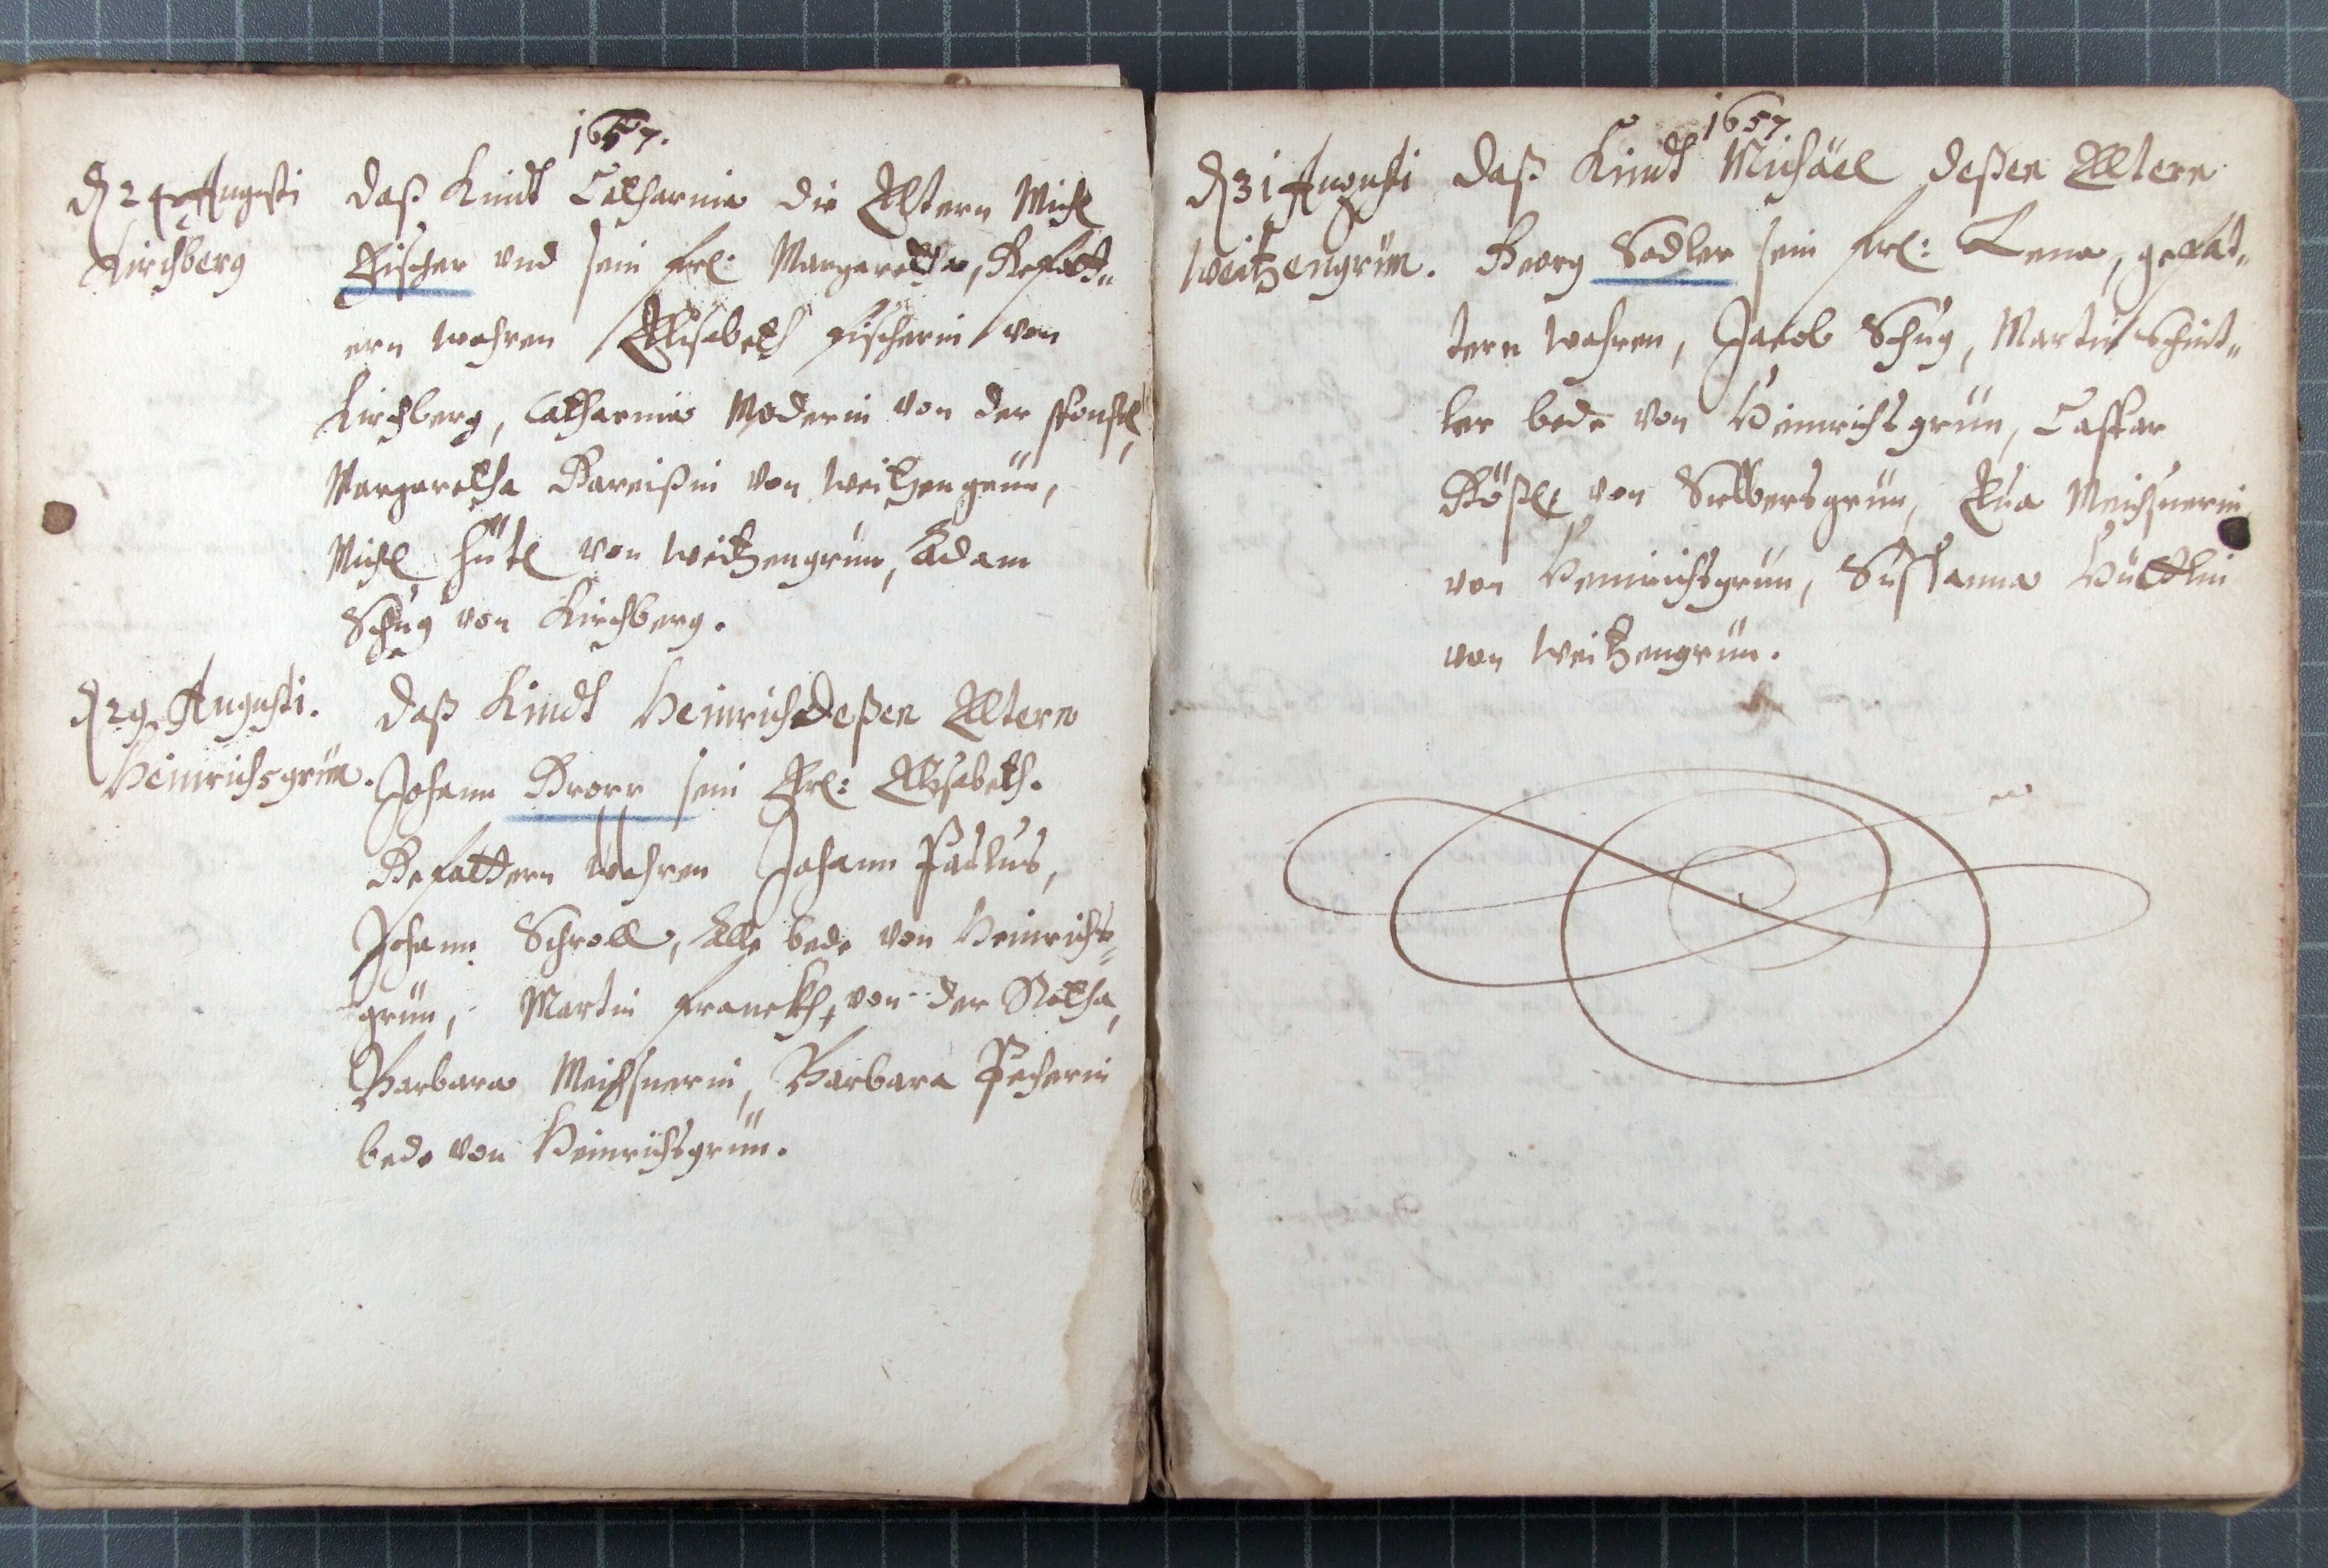 1657.
d 24 Augusti
Kirchberg
Daß Kindt Catharina die Eltern Michl
Fischer vnd sein frl: Margaretha, Gefatt„
ern wahren Elisabeth Fischerin von
Kirchberg, Catharina Moderin von der
Margaretha Gareißin von Weitzengrün,
Michl Hütl von Weitzengrün, Adam
Schug von Kirchberg.
d 29 Augusti.
Heinrichsgrün.
Daß Kindt Heinrich deßen Eltern
Johann sein Frl: Elisabeth.
Gefattern wahren Johann Paulus,
Johann Schroll, Alle bede von Heinrichs=
grün, Martin Franckh, von der Rotha,
Barbara Meichsnerin, Barbara Pecherin
bede von Heinrichsgrün.
1657.
d 31 Augusti
Weitzengrün.
Daß Kindt Michäel deßen Eltern
Georg Sadler sein frl: Lena, gefat„
tern wahren, Jacob Schug, Martin Schint„
ler bede von Heinrichsgrün, Caspar
Gößl, von Silbersgrün, Eua Meichsnerin
von Heinrichsgrün, Sussanna Hüttlin
von Weitzengrün.